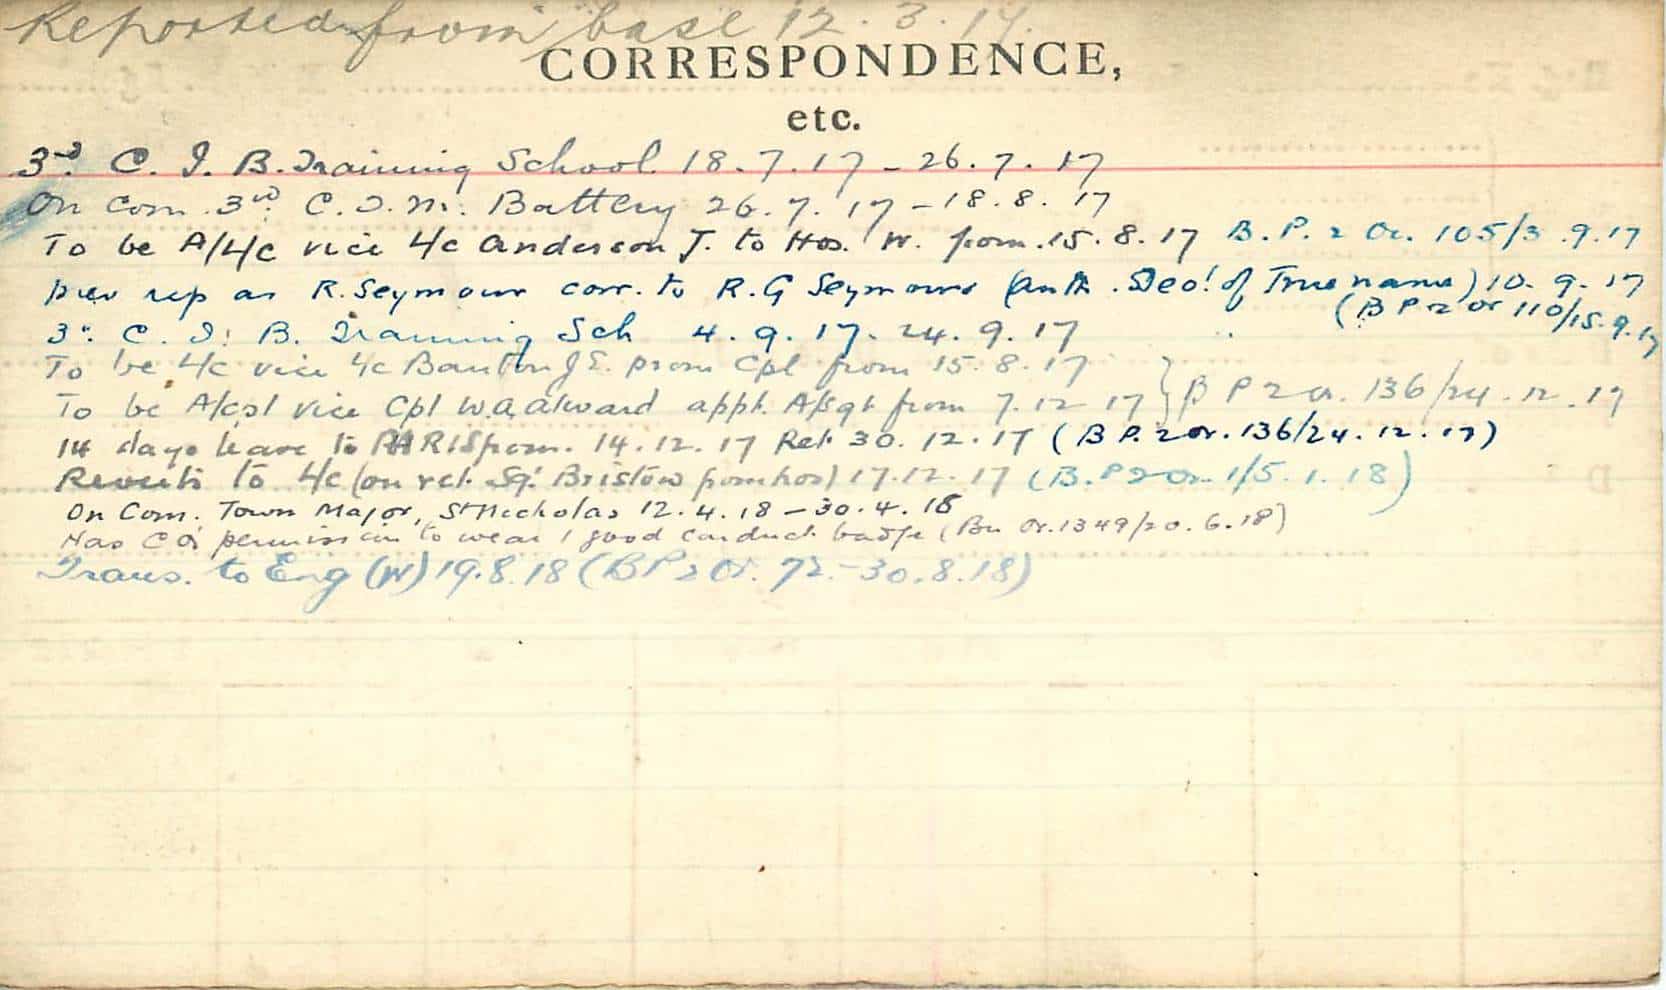 Reported from base 12.3.17.
CORRESPONDENCE,
etc.
3rd C. I. B. Training School 18.7.17 - 26.7.17
On com. 3rd C.T.M. Battery 26.7.17 - 18.8.17
To be A/L/c vice L/c Anderson J. to Hos. W. from 15.8.17 B.P. 2 Or. 105/3.9.17
prev rep as R. Seymour corr. to R. G Seymour (Auth. Decl of True name) 10.9.17
(B P 2 Or 110/15.9.17
3rd C. I. B. Training Sch 4.9.17 - 24.9.17
To be L/c vice L/c Banton J E. prom Cpl from 15.8.17
To be A/cpl vice Cpl W.A. Alward appt. A/Sgt from 7.12.17 } B P 2 Or. 136/24.12.17
14 days leave to PARIS from 14.12.17 Ret 30.12.17 (B P. 2 Or. 136/24.12.17)
Reverts to L/c (on ret Sgt Bristow from hos) 17.12.17 (B.P 2 Or 1/5.1.18)
On Com. Town Major, St Nicholas 12.4.18 - 30.4.18
Has C O's permission to wear 1 good conduct badge (Bn Or. 1349/20.6.18)
Trans. to Eng (W) 19.8.18 (B P 2 Or. 72 - 30.8.18)